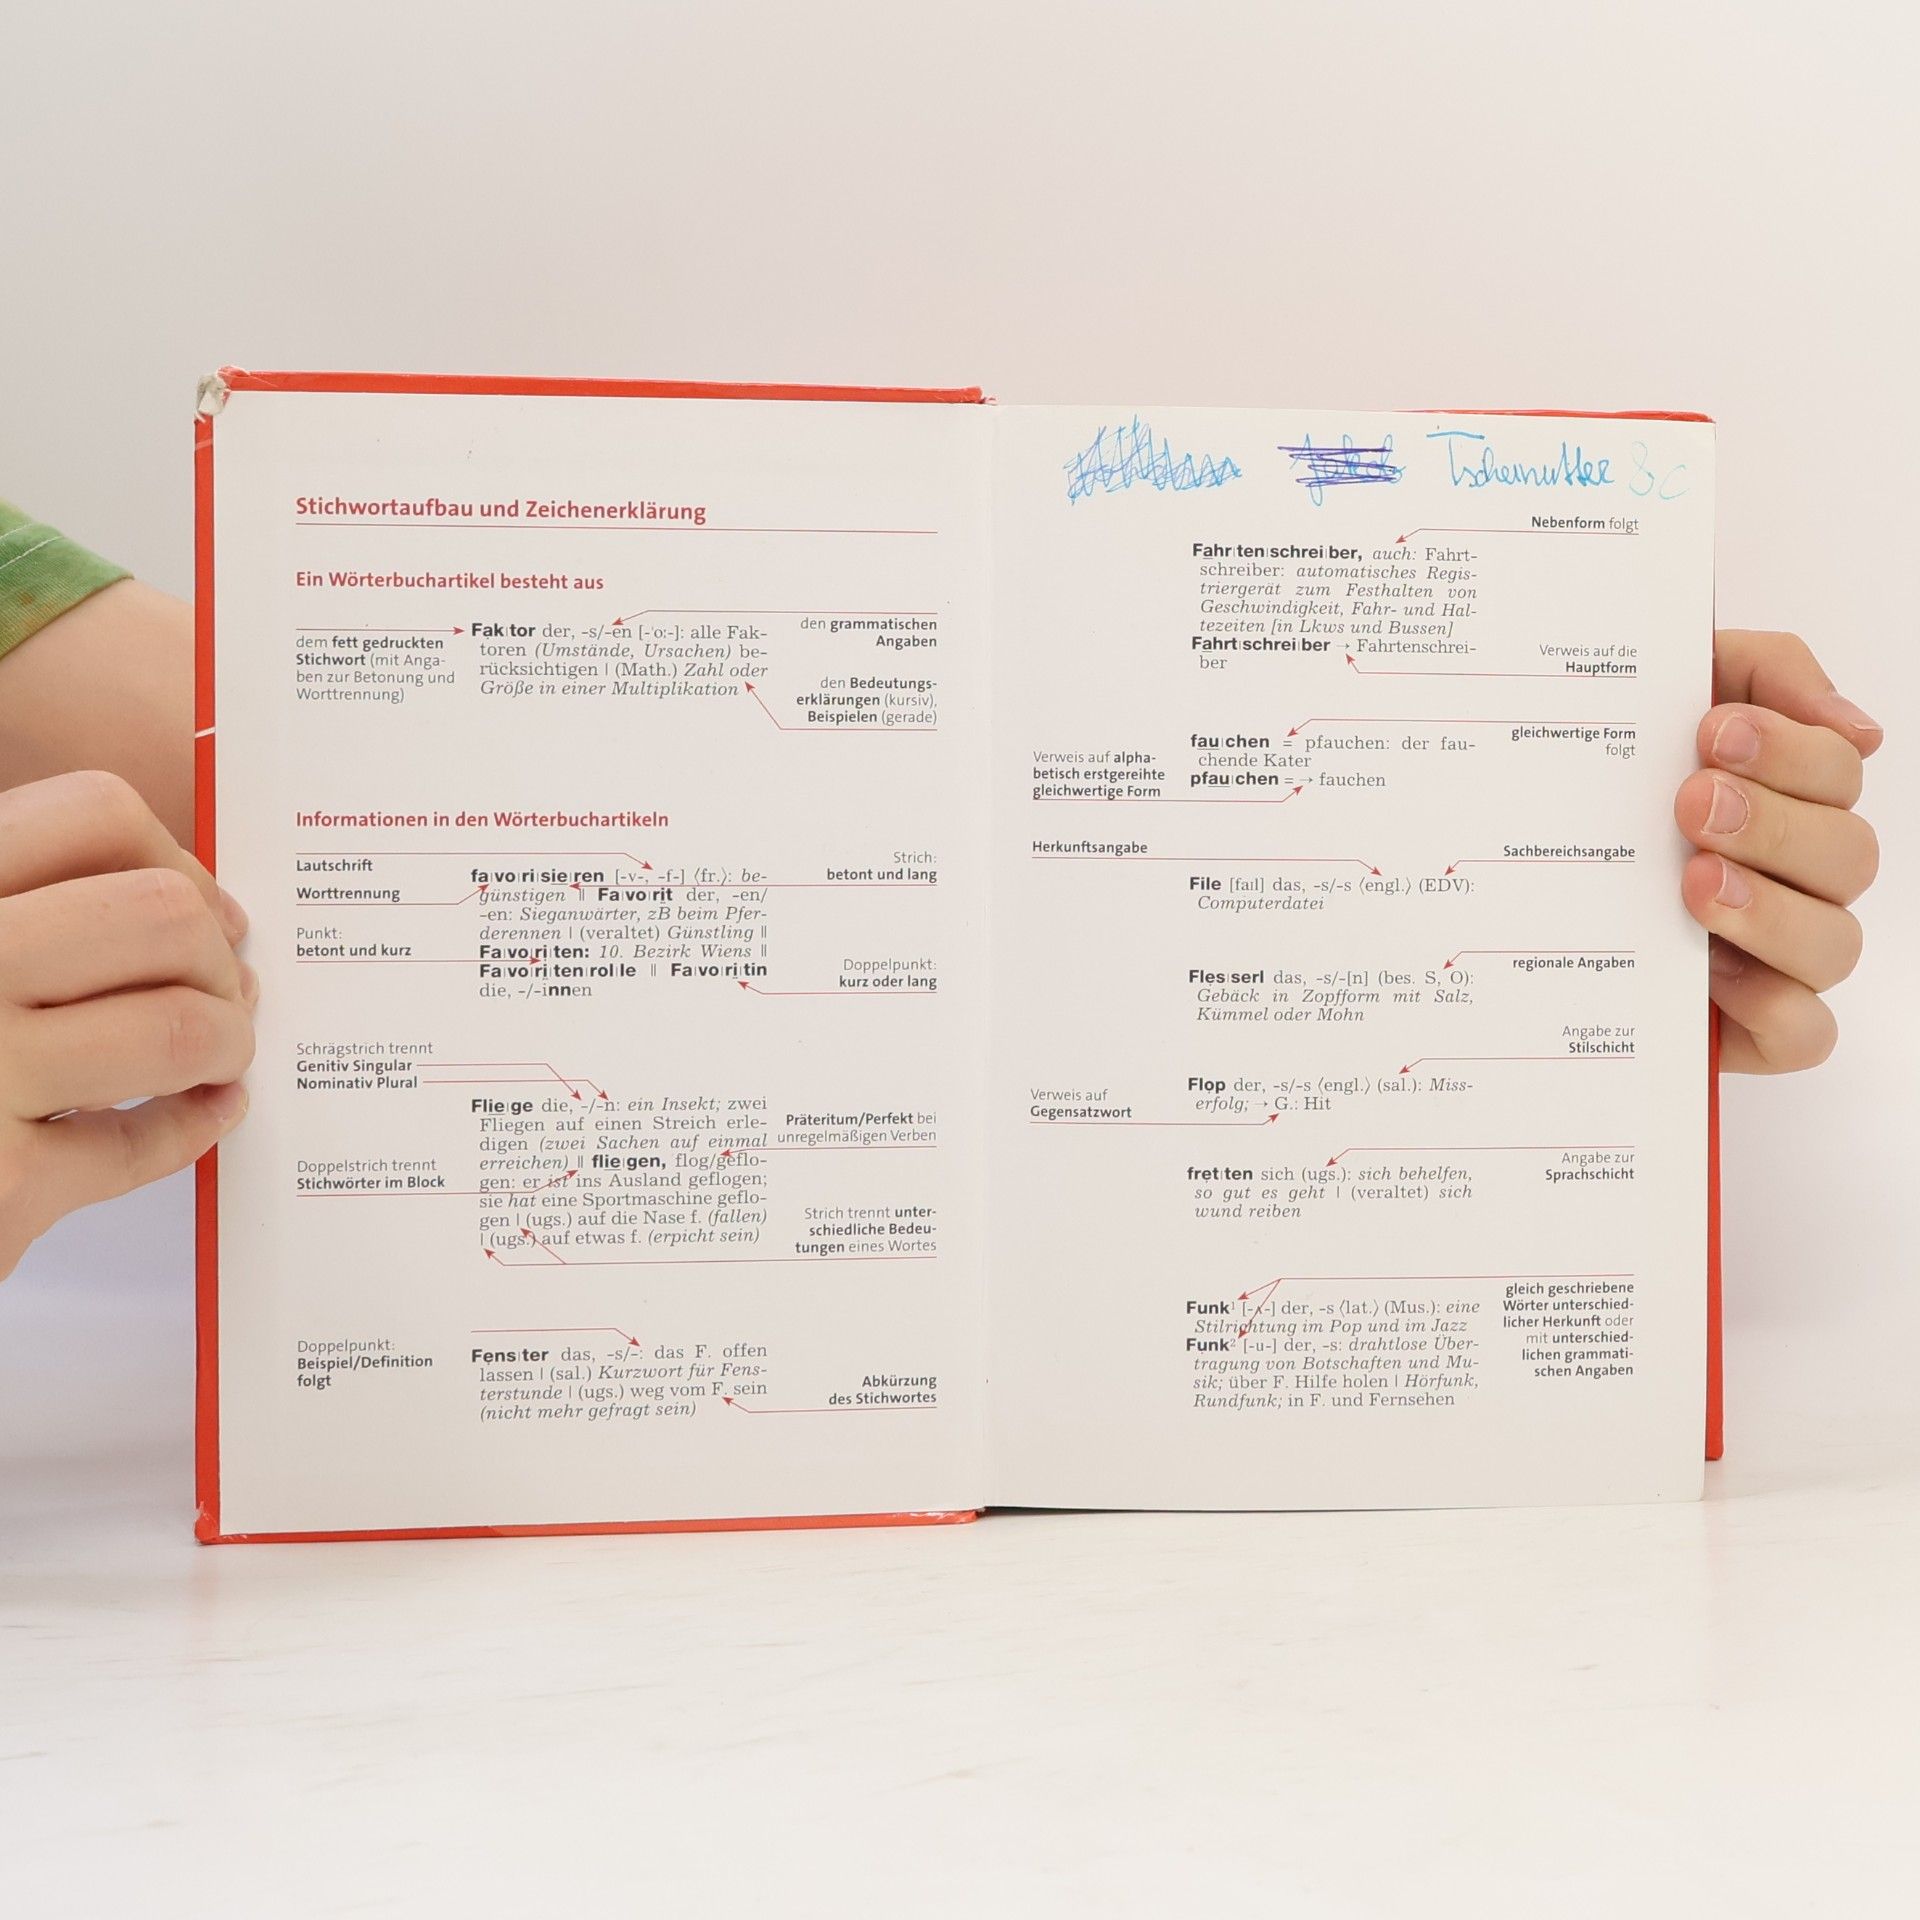 Stichwortaufbau und Zeichenerklärung
Ein Wörterbuchartikel besteht aus
dem fett gedruckten
Stichwort (mit Anga-
ben zur Betonung und
Worttrennung)
Fak|tor der, -s/-en [-ˈo:-]: alle Fak-
toren (Umstände, Ursachen) be-
rücksichtigen | (Math.) Zahl oder
Größe in einer Multiplikation
den grammatischen
Angaben
den Bedeutungs-
erklärungen (kursiv),
Beispielen (gerade)
Informationen in den Wörterbuchartikeln
Lautschrift
Worttrennung
Punkt:
betont und kurz
fa|vo|ri|sie|ren [-v-, -f-] ⟨fr.⟩: be-
günstigen || Fa|vo|rit der, -en/
-en: Sieganwärter, zB beim Pfer-
derennen | (veraltet) Günstling ||
Fa|vo|ri|ten: 10. Bezirk Wiens ||
Fa|vo|ri|ten|rol|le || Fa|vo|ri|tin
die, -/-innen
Strich:
betont und lang
Doppelpunkt:
kurz oder lang
Schrägstrich trennt
Genitiv Singular
Nominativ Plural
Doppelstrich trennt
Stichwörter im Block
Flie|ge die, -/-n: ein Insekt; zwei
Fliegen auf einen Streich erle-
digen (zwei Sachen auf einmal
erreichen) || flie|gen, flog/geflo-
gen: er ist ins Ausland geflogen;
sie hat eine Sportmaschine geflo-
gen | (ugs.) auf die Nase f. (fallen)
| (ugs.) auf etwas f. (erpicht sein)
Präteritum/Perfekt bei
unregelmäßigen Verben
Strich trennt unter-
schiedliche Bedeu-
tungen eines Wortes
Doppelpunkt:
Beispiel/Definition
folgt
Fens|ter das, -s/-: das F. offen
lassen | (sal.) Kurzwort für Fens-
terstunde | (ugs.) weg vom F. sein
(nicht mehr gefragt sein)
Abkürzung
des Stichwortes
Tschernutter 8c
Nebenform folgt
Fahr|ten|schrei|ber, auch: Fahrt-
schreiber: automatisches Regis-
triergerät zum Festhalten von
Geschwindigkeit, Fahr- und Hal-
tezeiten [in Lkws und Bussen]
Fahrt|schrei|ber → Fahrtenschrei-
ber
Verweis auf die
Hauptform
Verweis auf alpha-
betisch erstgereihte
gleichwertige Form
fau|chen = pfauchen: der fau-
chende Kater
pfau|chen = → fauchen
gleichwertige Form
folgt
Herkunftsangabe
Sachbereichsangabe
File [faıl] das, -s/-s ⟨engl.⟩ (EDV):
Computerdatei
regionale Angaben
Fles|serl das, -s/-[n] (bes. S, O):
Gebäck in Zopfform mit Salz,
Kümmel oder Mohn
Angabe zur
Stilschicht
Verweis auf
Gegensatzwort
Flop der, -s/-s ⟨engl.⟩ (sal.): Miss-
erfolg; → G.: Hit
Angabe zur
Sprachschicht
fret|ten sich (ugs.): sich behelfen,
so gut es geht | (veraltet) sich
wund reiben
Funk¹ [-ʌ-] der, -s ⟨lat.⟩ (Mus.): eine
Stilrichtung im Pop und im Jazz
Funk² [-u-] der, -s: drahtlose Über-
tragung von Botschaften und Mu-
sik; über F. Hilfe holen | Hörfunk,
Rundfunk; in F. und Fernsehen
gleich geschriebene
Wörter unterschied-
licher Herkunft oder
mit unterschied-
lichen grammati-
schen Angaben